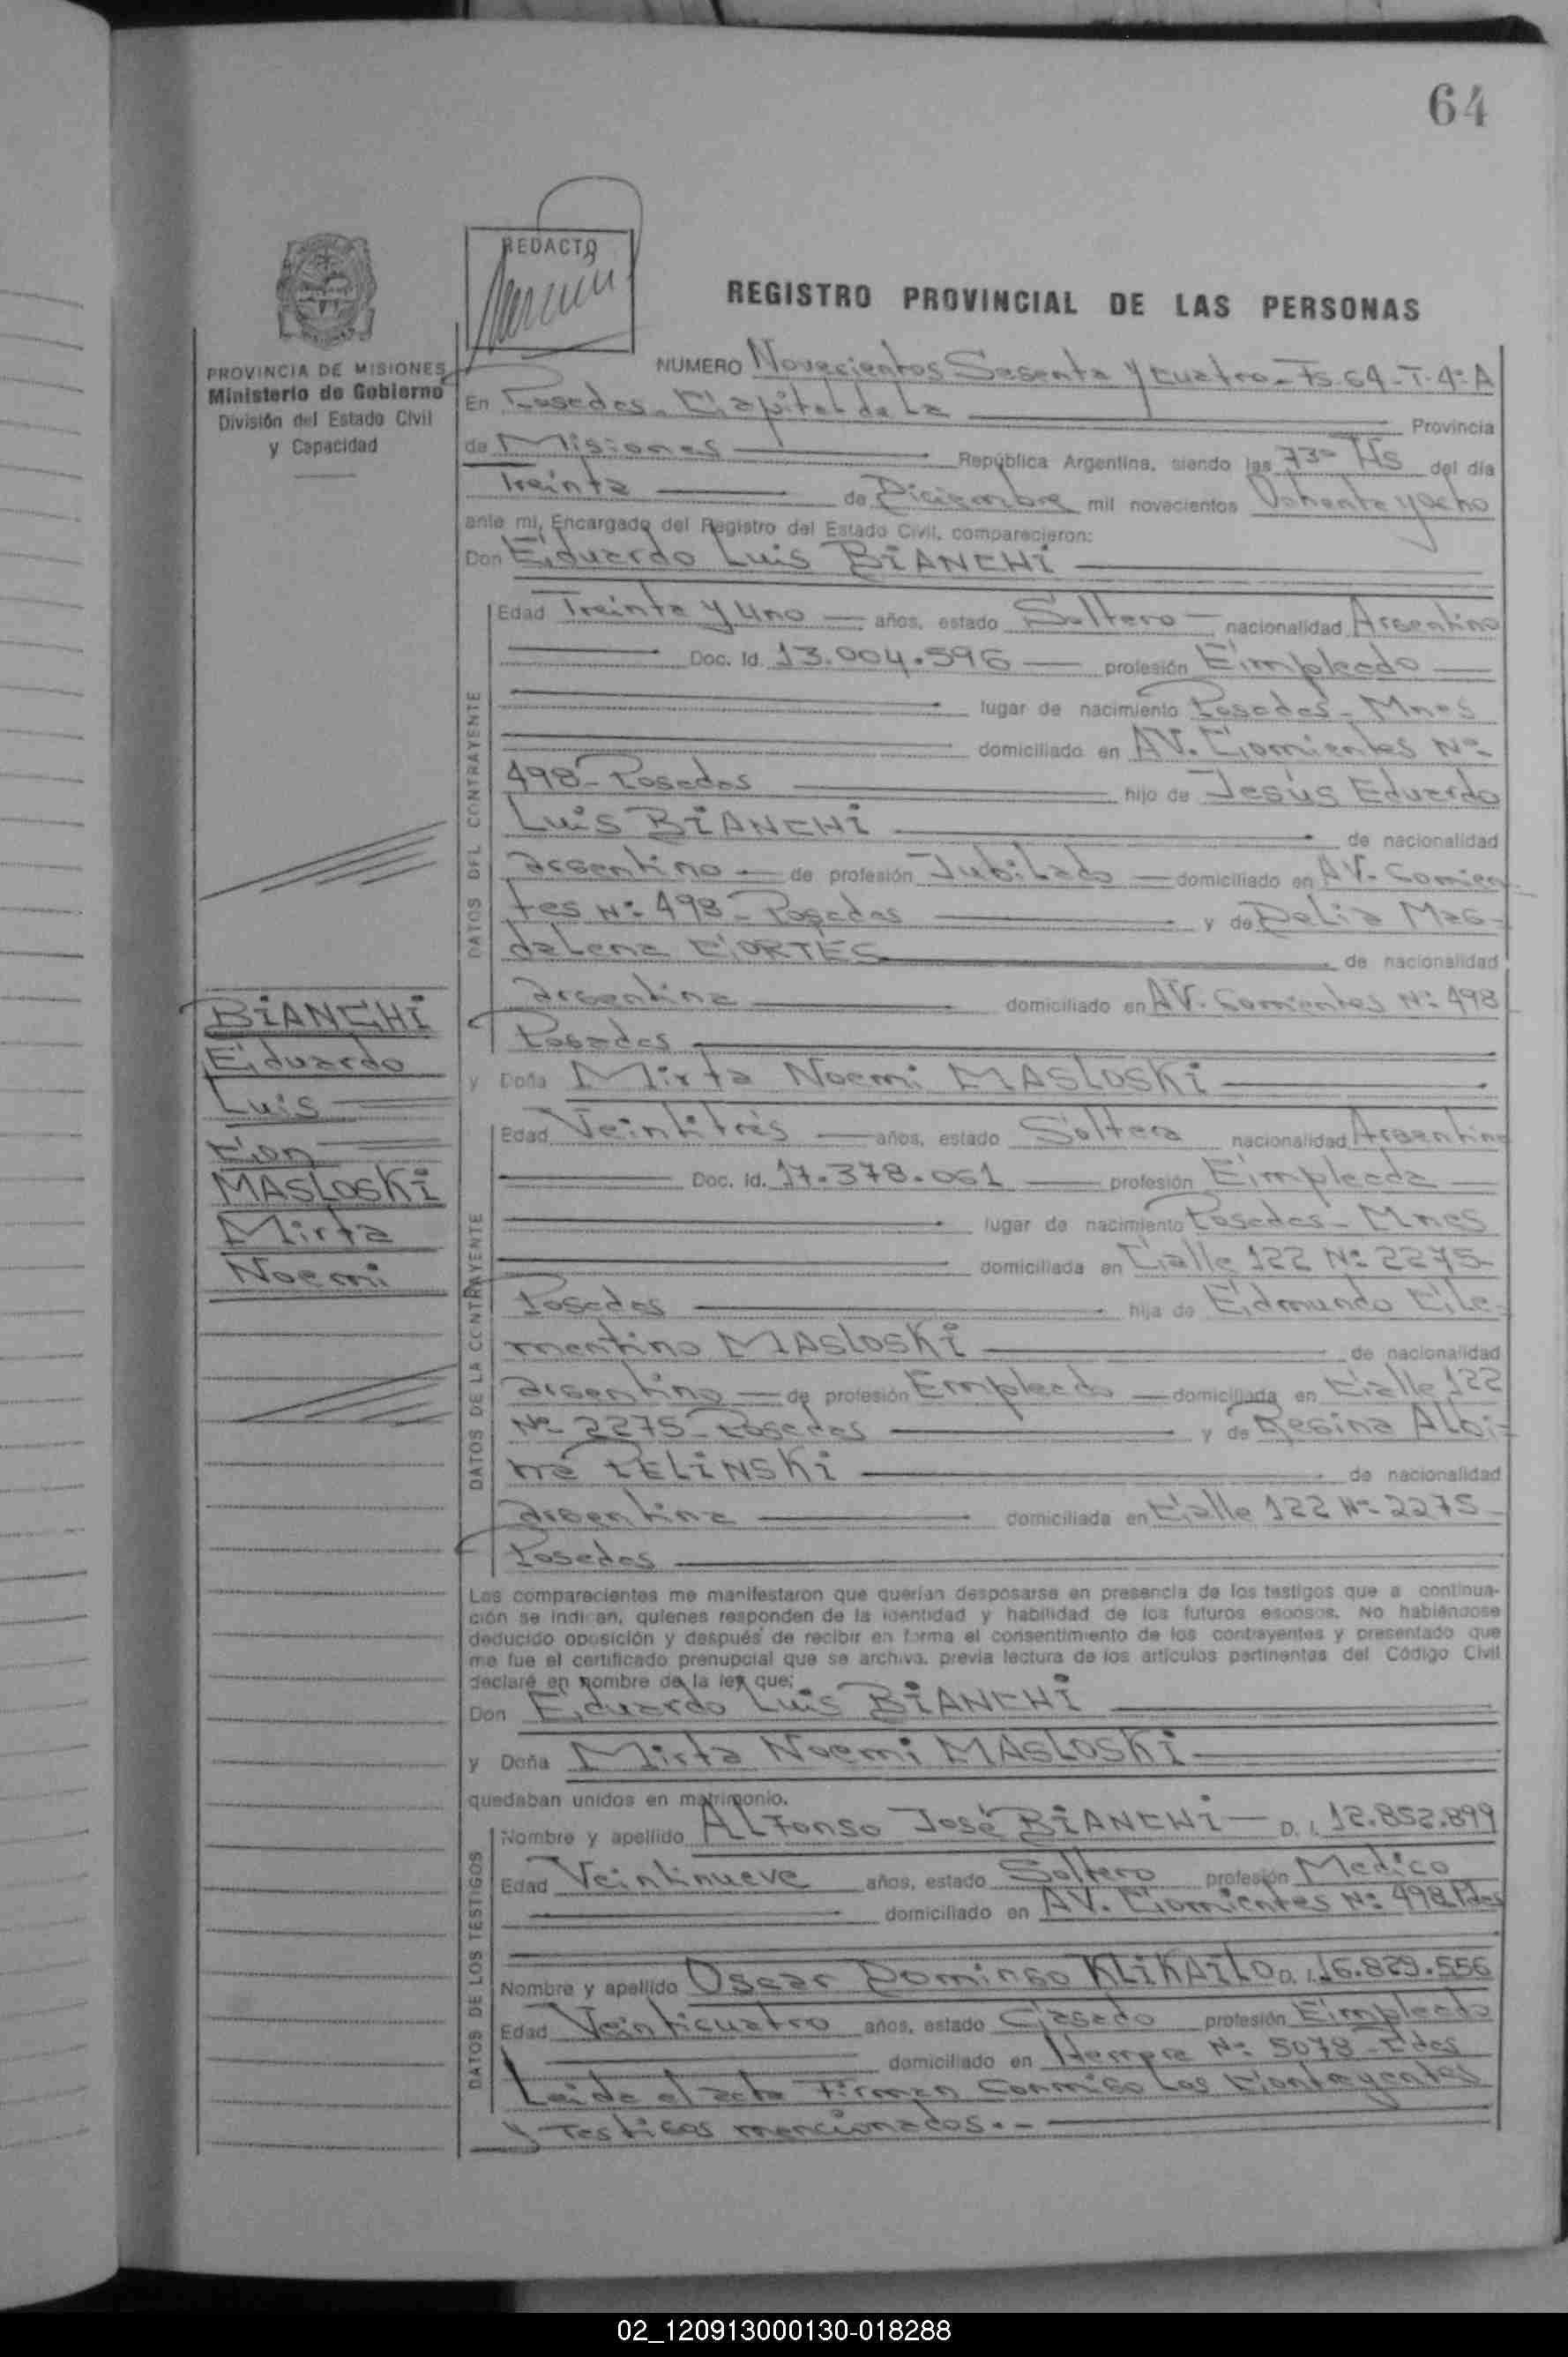 64
REDACTO
REGISTRO PROVINCIAL DE LAS PERSONAS
PROVINCIA DE MISIONES
Ministerio de Gobierno
División del Estado Civil
y Capacidad
NUMERO Novecientos Sesenta y cuatro - Fs 64 - T. 4º A
En Posadas, Capital de La Provincia
de Misiones República Argentina, siendo las Hs del día
Treinta de Diciembre mil novecientos Ochenta y ocho
ante mi, Encargado del Registro del Estado Civil, comparecieron:
Don Eduardo Luis BIANCHI
DATOS DEL CONTRAYENTE
Edad Treinta y Uno años, estado Soltero nacionalidad Argentino
Doc. Id. 13.004.596 profesión Empleado
lugar de nacimiento Posadas - Mnes
domiciliado en AV. Corrientes Nº
498 - Posadas hijo de Jesús Eduardo
Luis BIANCHI de nacionalidad
argentino de profesión Jubilado domiciliado en AV. Corrien-
tes Nº 498 - Posadas y de Delia Mag-
dalena CORTÉS de nacionalidad
argentina domiciliado en AV. Corrientes Nº 498
Posadas
BIANCHI
Eduardo
Luis
Con
MASLOSKI
Mirta
Noemi
y Doña Mirta Noemi MASLOSKI
DATOS DE LA CONTRAYENTE
Edad Veintitrés años, estado Soltera nacionalidad Argentina
Doc. Id. 17.378.061 profesión Empleada
lugar de nacimiento Posadas - Mnes
domiciliada en Calle 122 Nº 2275-
Posadas hija de Edmundo Cle-
mentino MASLOSKI de nacionalidad
argentino de profesión Empleado domiciliada en Calle 122
Nº 2275 - Posadas y de Regina Albi-
na PELINSKI de nacionalidad
argentina domiciliada en Calle 122 Nº 2275-
Posadas
Los comparecientes me manifestaron que querían desposarse en presencia de los testigos que a continua-
ción se indican, quienes responden de la identidad y habilidad de los futuros esposos. No habiéndose
deducido oposición y después de recibir en forma el consentimiento de los contrayentes y presentado que
me fue el certificado prenupcial que se archiva, previa lectura de los artículos pertinentes del Código Civil
declaré en nombre de la ley que:
Don Eduardo Luis BIANCHI
y Doña Mirta Noemi MASLOSKI
quedaban unidos en matrimonio.
DATOS DE LOS TESTIGOS
Nombre y apellido Alfonso José BIANCHI D. I. 12.852.899
Edad Veintinueve años, estado Soltero profesión Medico
domiciliado en AV. Corrientes Nº 498 Pdas
Nombre y apellido Oscar Domingo KLIKAILO D. I. 16.829.556
Edad Veinticuatro años, estado Casado profesión Empleado
domiciliado en Nº 5078 - Pdas
Leida el acta Firman Conmigo Los Contrayentes
y Testigos mencionados.-
02_120913000130-018288